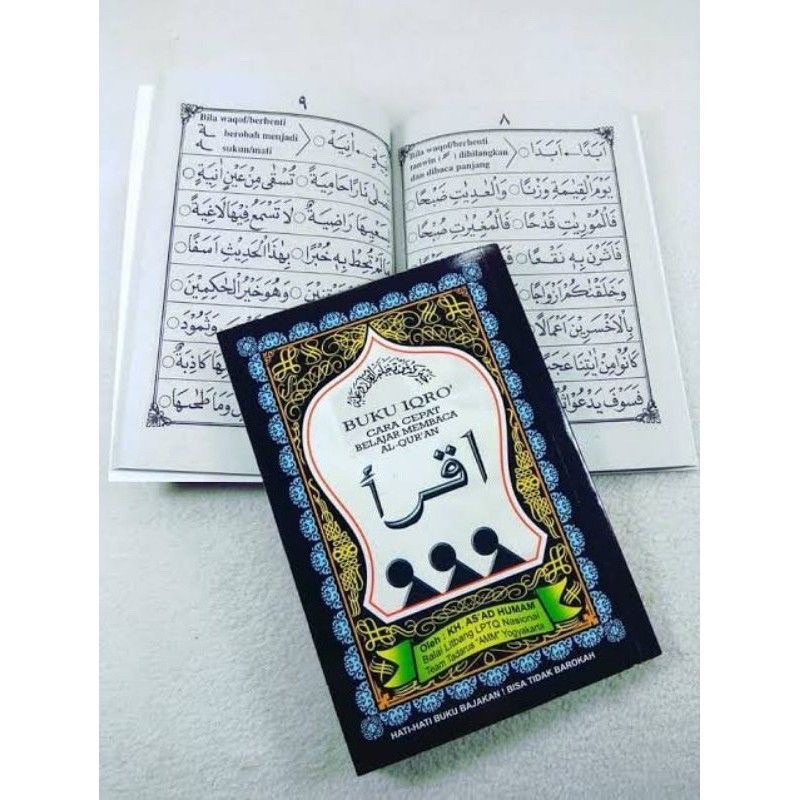 ٨
Bila waqof/berhenti
tanwin ( ـً ) dibilangkan
dan dibaca panjang
اَبَدًا ← اَبَدَا
يَوْمَ الْقِيٰمَةِ وَزْنًا ○ وَالْعٰدِيٰتِ ضَبْحًا ○
فَالْمُوْرِيٰتِ قَدْحًا ○ فَالْمُغِيْرٰتِ صُبْحًا ○
فَاَثَرْنَ بِهٖ نَقْعًا ○
وَخَلَقْنٰكُمْ اَزْوَاجًا ○
بِالْاَخْسَرِيْنَ اَعْمَالًا
كَانُوْا مِنْ اٰيٰتِنَا عَجَبًا
فَسَوْفَ يَدْعُوْا
٩
Bila waqof/berhenti
ـة berobah menjadi
ـه sukun/mati
اٰنِيَةْ ○
نَارًا حَامِيَةً ○ تُسْقٰى مِنْ عَيْنٍ اٰنِيَةٍ ○
لِسَعْيِهَا رَاضِيَةٌ ○ لَا تَسْمَعُ فِيْهَا لَاغِيَةً ○
مَالَمْ تُحِطْ بِهٖ خُبْرًا ○ بِهٰذَا الْحَدِيْثِ اَسَفًا ○
وَهُوَ خَيْرُ الْحٰكِمِيْنَ ○
وَثَمُوْدَ
كَاذِبَةٌ ○
وَمَا طَحٰىهَا ○
BUKU IQRO'
CARA CEPAT
BELAJAR MEMBACA
AL-QUR'AN
اقرأ
Oleh : KH. AS'AD HUMAM
Balai Litbang LPTQ Nasional
Team Tadarus "AMM" Yogyakarta
HATI-HATI BUKU BAJAKAN ! BISA TIDAK BAROKAH